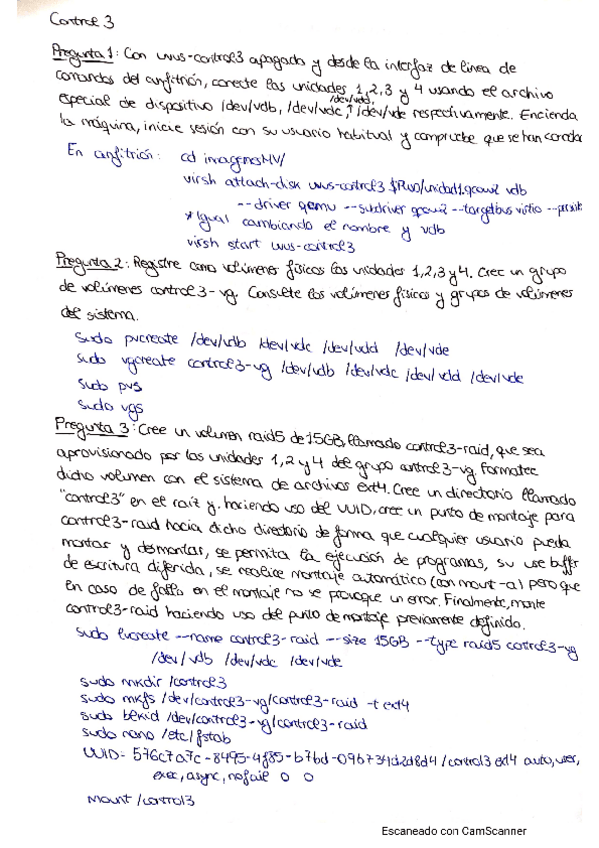 Control 3
Pregunta 1: Con uvus-control3 apagado y desde la interfaz de línea de
comandos del anfitrión, conecte las unidades 1,2,3 y 4 usando el archivo
especial de dispositivo /dev/vdb, /dev/vdc, /dev/vdd, /dev/vde respectivamente. Encienda
la máquina, inicie sesión con su usuario habitual y compruebe que se han conectado
En anfitrión: cd imagenesMV/
virsh attach-disk uvus-control3 $PWD/unidad1.qcow2 vdb
--driver qemu --subdriver qcow2 --targetbus virtio --persist
* Igual cambiando el nombre y vdb
virsh start uvus-control3
Pregunta 2: Registre como volúmenes físicos las unidades 1,2,3 y 4. Cree un grupo
de volúmenes control3-vg. Consulte los volúmenes físicos y grupos de volúmenes
del sistema.
sudo pvcreate /dev/vdb /dev/vdc /dev/vdd /dev/vde
sudo vgcreate control3-vg /dev/vdb /dev/vdc /dev/vdd /dev/vde
sudo pvs
sudo vgs
Pregunta 3: Cree un volumen raid5 de 15GB, llamado control3-raid, que sea
aprovisionado por las unidades 1,2 y 4 del grupo control3-vg. Formatee
dicho volumen con el sistema de archivos ext4. Cree un directorio llamado
"control3" en el raíz y, haciendo uso del UUID, cree un punto de montaje para
control3-raid hacia dicho directorio de forma que cualquier usuario pueda
montar y desmontar, se permita la ejecución de programas, su use buffer
de escritura diferida, se realice montaje automático (con mount -a) pero que
en caso de fallo en el montaje no se provoque un error. Finalmente, monte
control3-raid haciendo uso del punto de montaje previamente definido.
sudo lvcreate --name control3-raid --size 15GB --type raid5 control3-vg
/dev/vdb /dev/vdc /dev/vde
sudo mkdir /control3
sudo mkfs /dev/control3-vg/control3-raid -t ext4
sudo blkid /dev/control3-vg/control3-raid
sudo nano /etc/fstab
UUID= 576c7a7c-8495-4f85-b7bd-09b734d2d8d4 /control3 ext4 auto,user,
exec,async,nofail 0 0
mount /control3
Escaneado con CamScanner